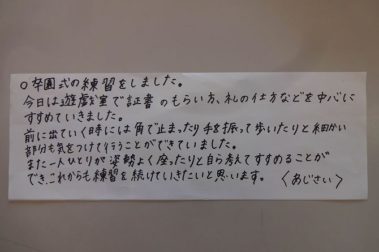 ○卒園式の練習をしました。
今日は遊戯室で証書のもらい方、礼の仕方などを中心に
すすめていきました。
前に出ていく時には角で止まったり手を振って歩いたりと細かい
部分も気をつけて行うことができていました。
また一人ひとりが姿勢よく座ったりと自ら考えてすすめることが
でき、これからも練習を続けていきたいと思います。〈あじさい〉